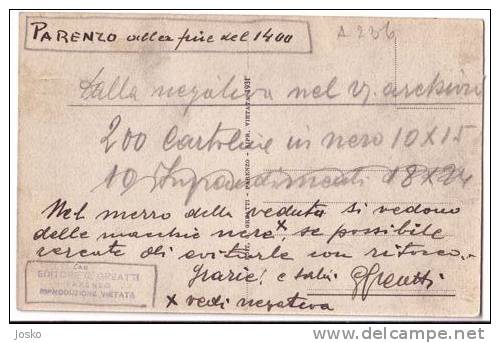 PARENZO alla fine del 1400
A 236
Dalla negativa nel vs. archivio
200 Cartoline in nero 10X15
10 Ingrandimenti 18X24
Nel mezzo della veduta si vedono
delle macchie nere X, se possibile
cercate di evitarle con ritocco.
Grazie! e saluti GGreatti
X vedi negativa
EDITORE G. GREATTI
PARENZO
RIPRODUZIONE VIETATA
EDIT. G. GREATTI - PARENZO - RIPR. VIETATA - 1931
Josko
www.delcampe.net